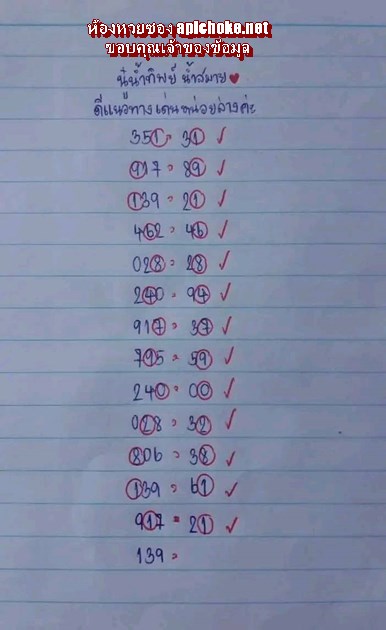 ห้องหวยซอง apichoke.net
ขอบคุณเจ้าของข้อมูล
น้ำทิพย์ น้ำสบาย ♥
ดีแนวทางเด่นหน่วยล่างค่ะ
351 = 31 ✓
917 = 89 ✓
139 = 21 ✓
462 = 46 ✓
028 = 28 ✓
240 = 94 ✓
917 = 37 ✓
795 = 59 ✓
240 = 00 ✓
028 = 32 ✓
806 = 38 ✓
139 = 61 ✓
917 = 21 ✓
139 =